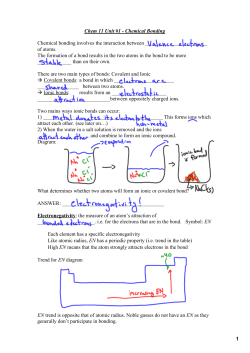 Chem 11 Unit #1 - Chemical Bonding
Chemical bonding involves the interaction between valence electrons
of atoms.
The formation of a bond results in the two atoms in the bond to be more
stable than on their own.
There are two main types of bonds: Covalent and Ionic
→ Covalent bonds: a bond in which electrons are
shared between two atoms.
→ Ionic bonds: results from an electrostatic
attraction between oppositely charged ions.
Two mains ways ionic bonds can occur:
1) metal donates its electron to This forms ions which
non-metal
attract each other. (see later on...)
2) When the water in a salt solution is removed and the ions
attract each other and combine to form an ionic compound.
Diagram: → evaporation
Na+ Cl-
Na+ Cl-
Ionic bond is formed
NaCl(s)
What determines whether two atoms will form an ionic or covalent bond?
ANSWER: electronegativity!
Electronegativity: the measure of an atom's attraction of
bonded electrons i.e. for the electrons that are in the bond. Symbol: EN
Each element has a specific electronegativity
Like atomic radius, EN has a periodic property (i.e. trend in the table)
High EN means that the atom strongly attracts electrons in the bond
Trend for EN diagram:
~4.0
increasing EN
EN trend is opposite that of atomic radius. Noble gasses do not have an EN as they
generally don't participate in bonding.
1